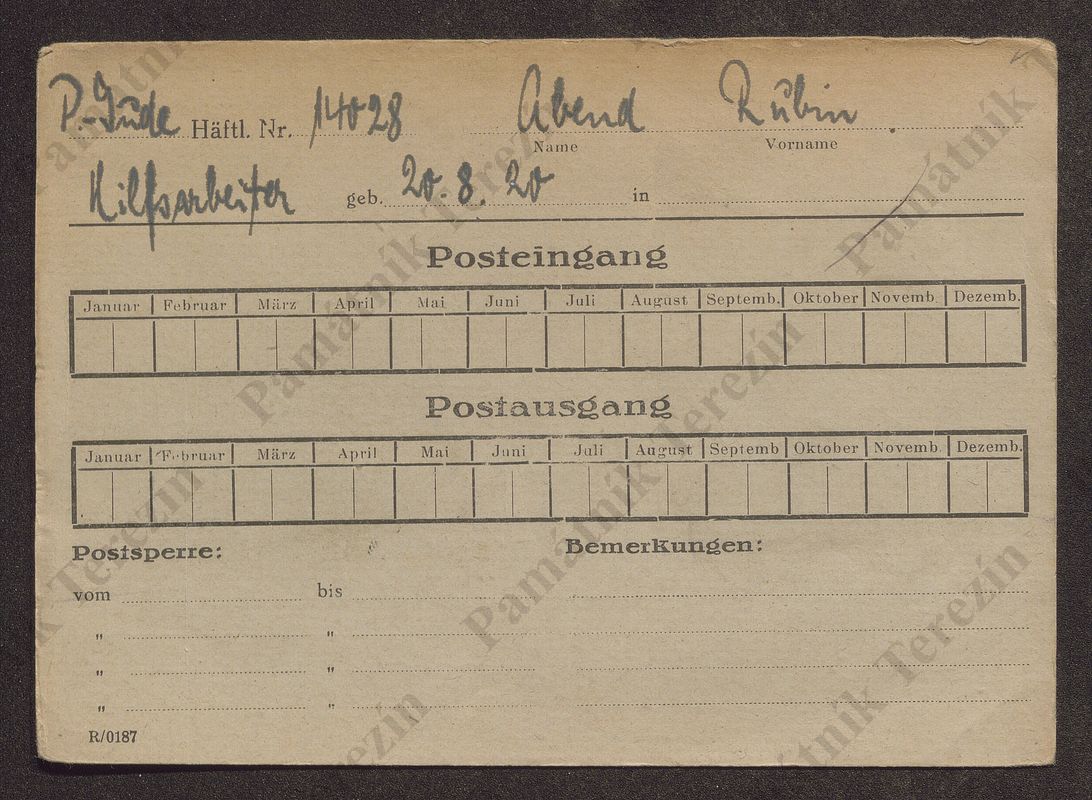 P.-Jude Häftl. Nr. 14028 Abend Rubin
Name Vorname
Hilfsarbeiter geb. 20.8.20 in
Posteingang
Januar Februar März April Mai Juni Juli August Septemb. Oktober Novemb. Dezemb.
Postausgang
Januar Februar März April Mai Juni Juli August Septemb Oktober Novemb. Dezemb.
Postsperre: Bemerkungen:
vom bis
" "
" "
" "
R/0187
Památník Terezín